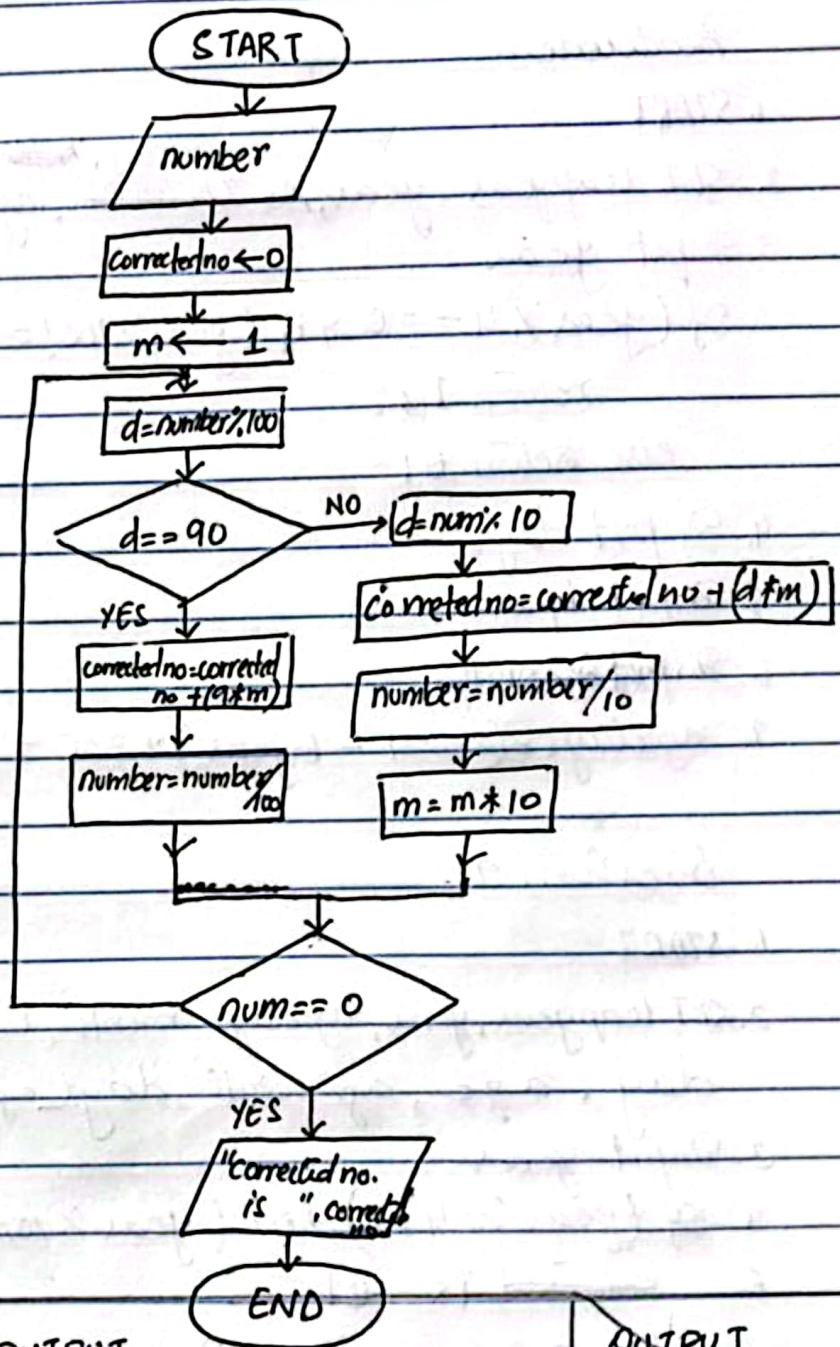 START
number
correctedno ← 0
m ← 1
d=number%100
d==90
NO
d=num% 10
Corretedno=corrected no + (d*m)
number=number/10
m = m * 10
YES
correctedno=corrected
no +(9*m)
number=number/
100
num== 0
YES
"Corrected no.
is ",
END
OUTPUT
OUTPUT